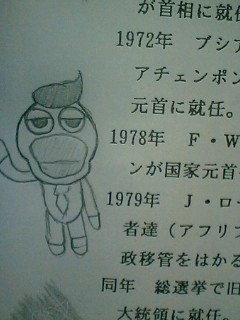 が首相に就任
1972年 ブシア
アチェンポン
元首に就任。
1978年 F・W
ンが国家元首
1979年 J・ロー
者達(アフリフ
政移管をはかる
同年 総選挙で旧
大統領に就任。